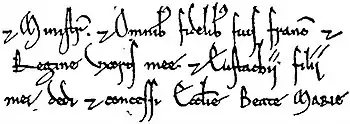 ⁊ Ministr̄. ⁊ Omnib; fidelib; suis franc̄ ⁊
Regine uxoris mee ⁊ Eustachii filii
mei dedi ⁊ concessi Ecclesie Beate Marie